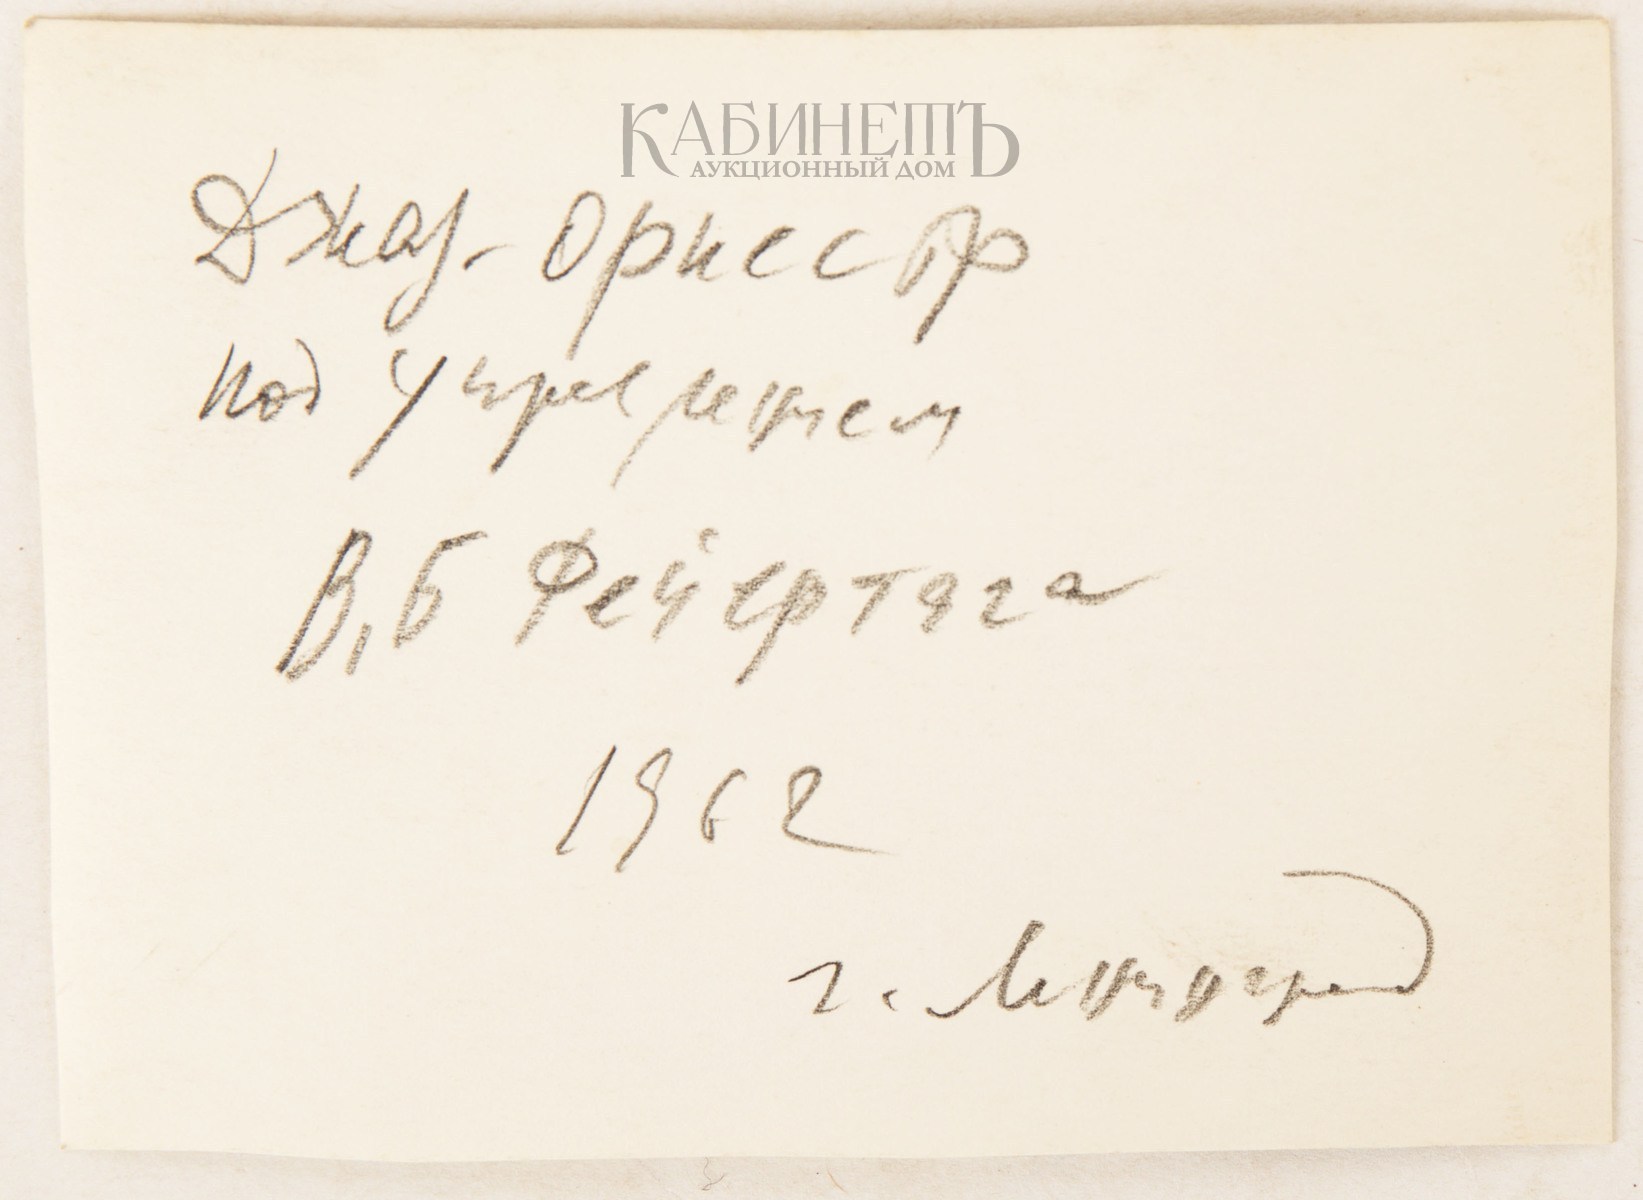 КАБИНЕТЪ
АУКЦИОННЫЙ ДОМ
Джаз-оркестр
под управлением
В,Б Фейертага
1962
г. Ленинград